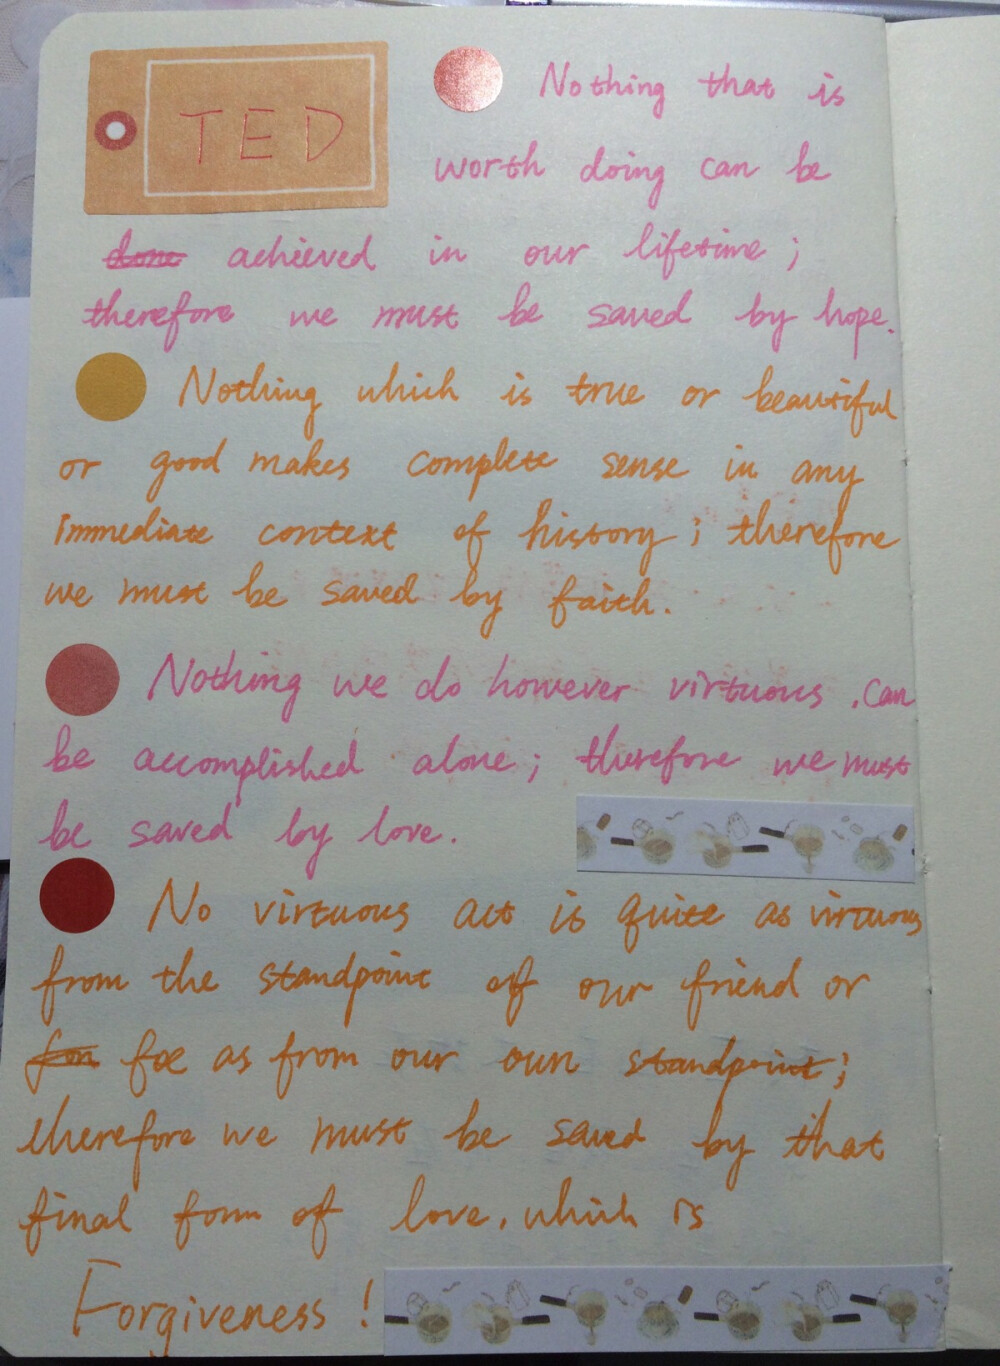 TED
Nothing that is
worth doing can be
done achieved in our lifetime;
therefore we must be saved by hope.
Nothing which is true or beautiful
or good makes complete sense in any
immediate context of history; therefore
we must be saved by faith.
Nothing we do however virtuous, can
be accomplished alone; therefore we must
be saved by love.
No virtuous act is quite as virtuous
from the standpoint of our friend or
fon foe as from our own standpoint;
therefore we must be saved by that
final form of love, which is
Forgiveness!